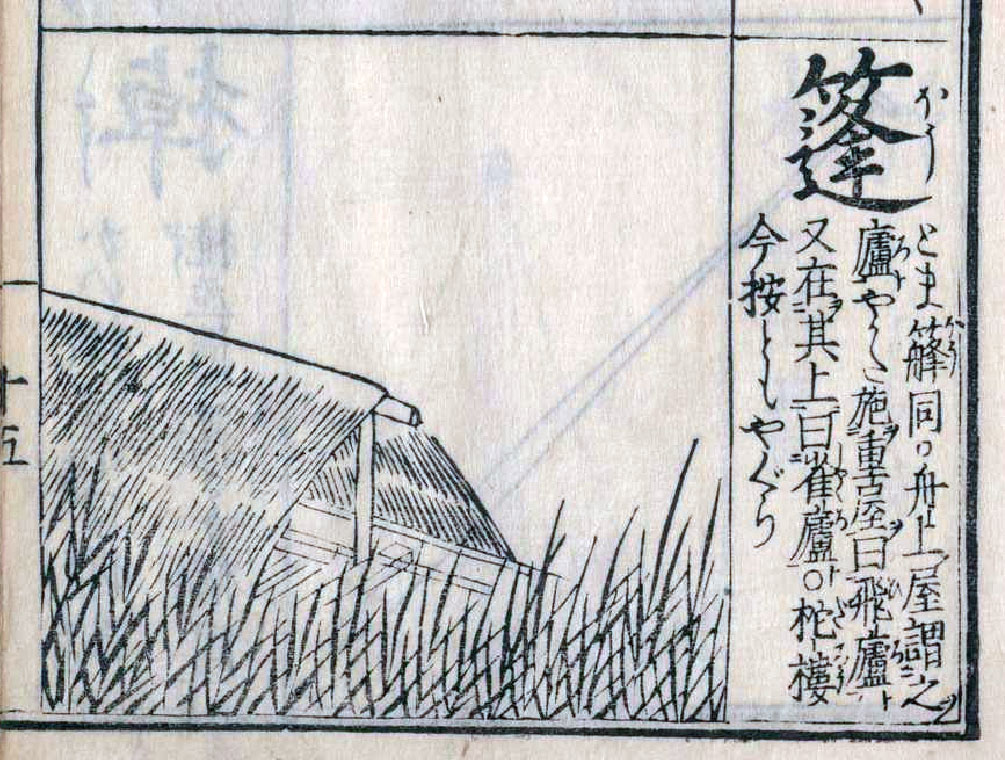 篷
ほう
とま 䉥同。舟上屋謂之
廬やかた施重屋曰飛廬
又在其上曰雀廬〇柁樓
今按ともやぐら
十五